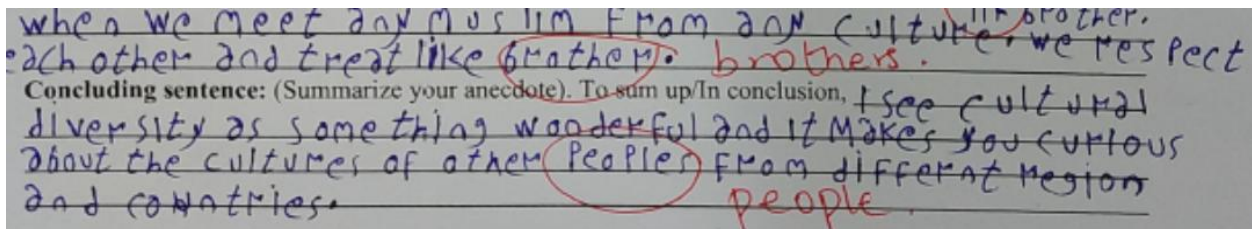 when we meet any muslim from any culture. we respect
each other and treat like brother. brothers.
Concluding sentence: (Summarize your anecdote). To sum up/In conclusion, I see cultural
diversity as something wonderful and it makes you curious
about the cultures of other Peoples from differnt region
and countries. people.